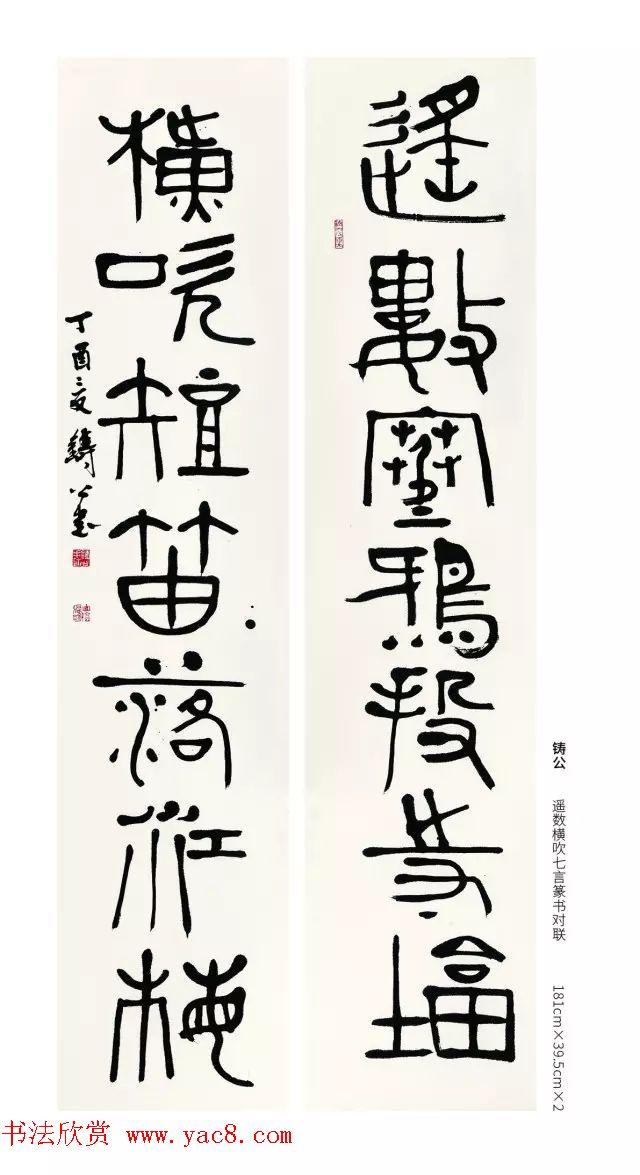 遙數寒鴉投寺塔
橫吹短笛落江梅
丁酉 夏 鑄公
铸公 遥数横吹七言篆书对联 181cm×39.5cm×2
书法欣赏 www.yac8.com